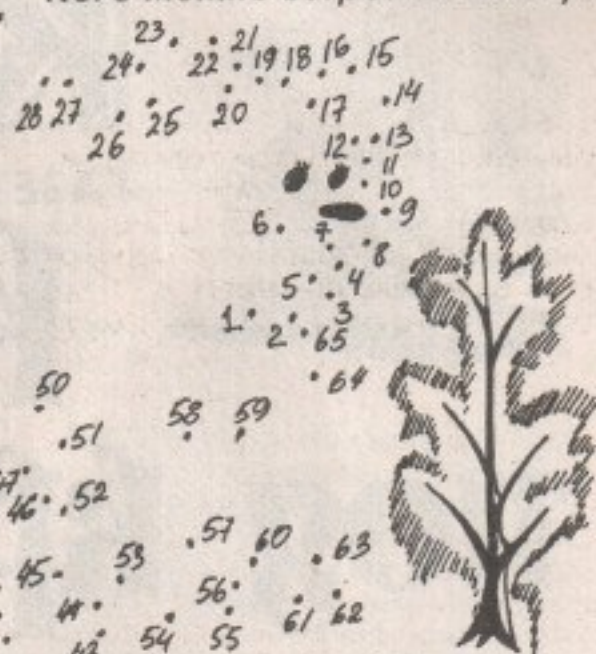 23 21
24 22 19 18 16 15
28 27 26 25 20 17 14
12 13
11
10
6 7 9
8
5 4
1 2 3
65
64
50
51 58 59
46 52
57 60 63
45 53 56
54 55 61 62